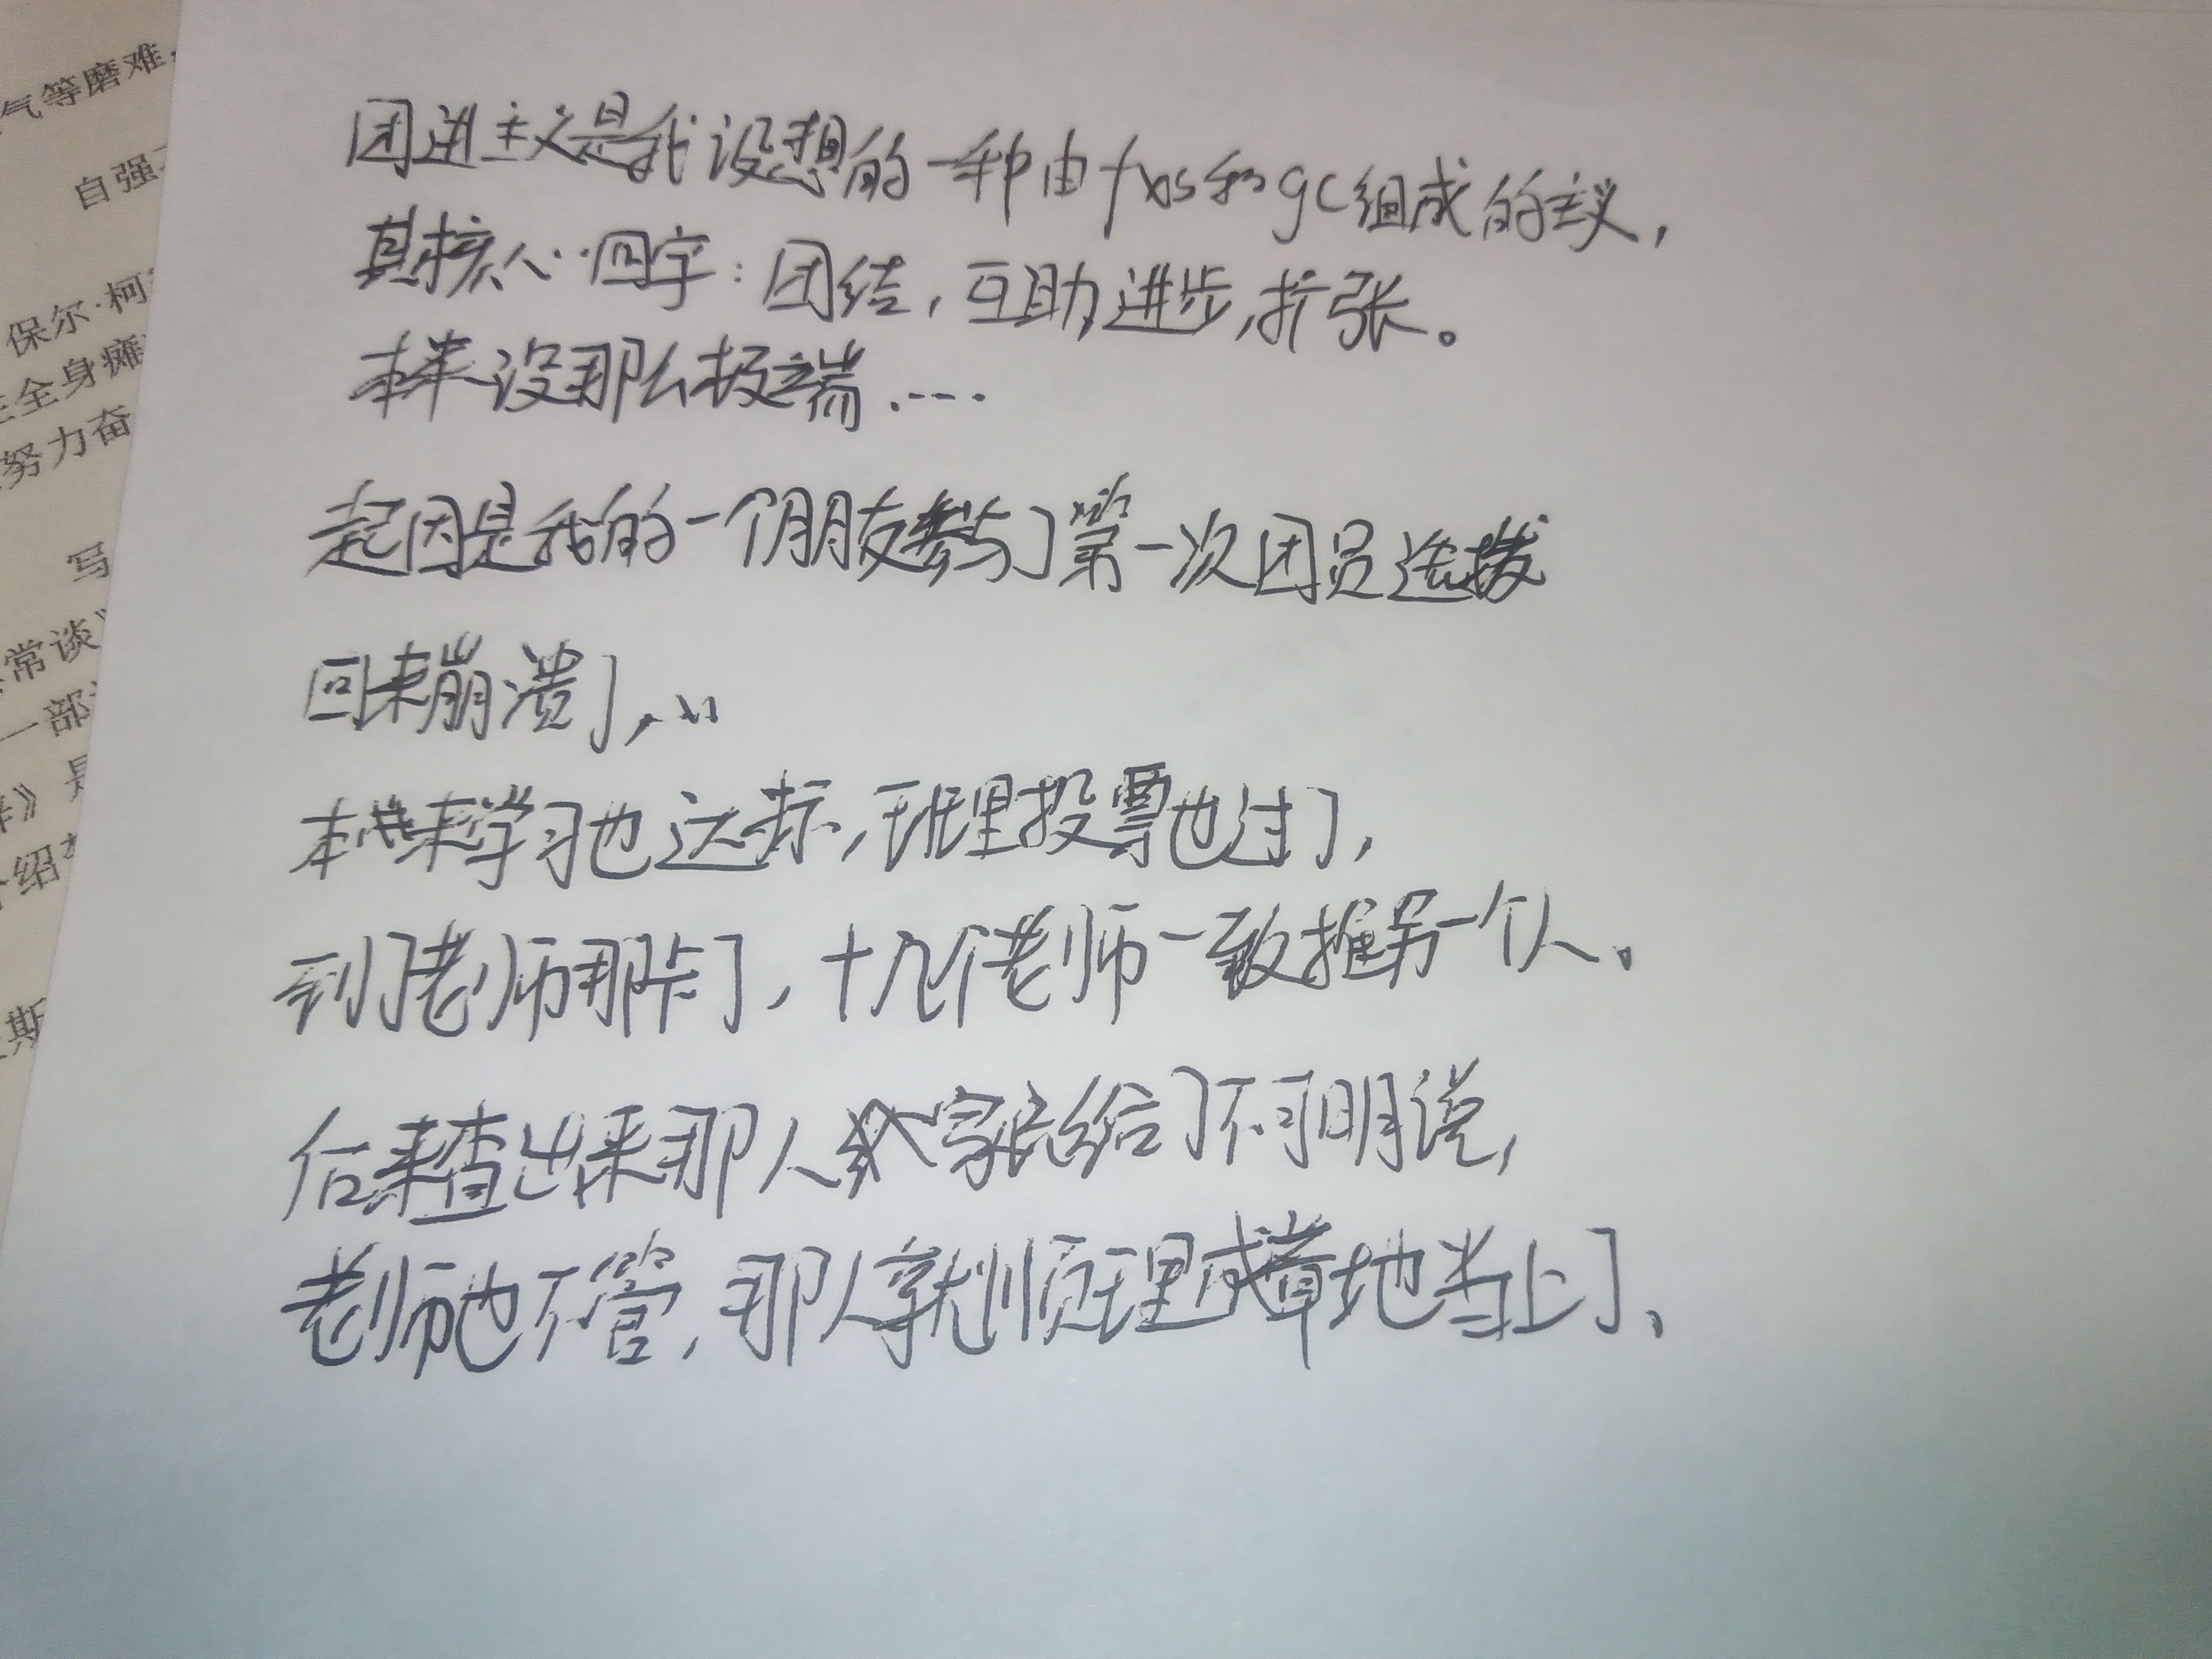 气等磨难,
自强
保尔·柯
全身瘫
努力奋
写
常谈》
一部
》是
绍
斯
团进主义是我设想的一种由fxs和gc组成的主义,
其核心四字:团结,互助,进步,扩张。
本来没那么极端....
起因是我的一个朋友参与了第一次团员选拔
回来崩溃了,...
本来学习也达标,班里投票也过了,
到了老师那卡了,十几个老师一致推另一个人、
后来查出来那人家长给了不可明说,
老师也不管,那人就顺理成章地当上了、